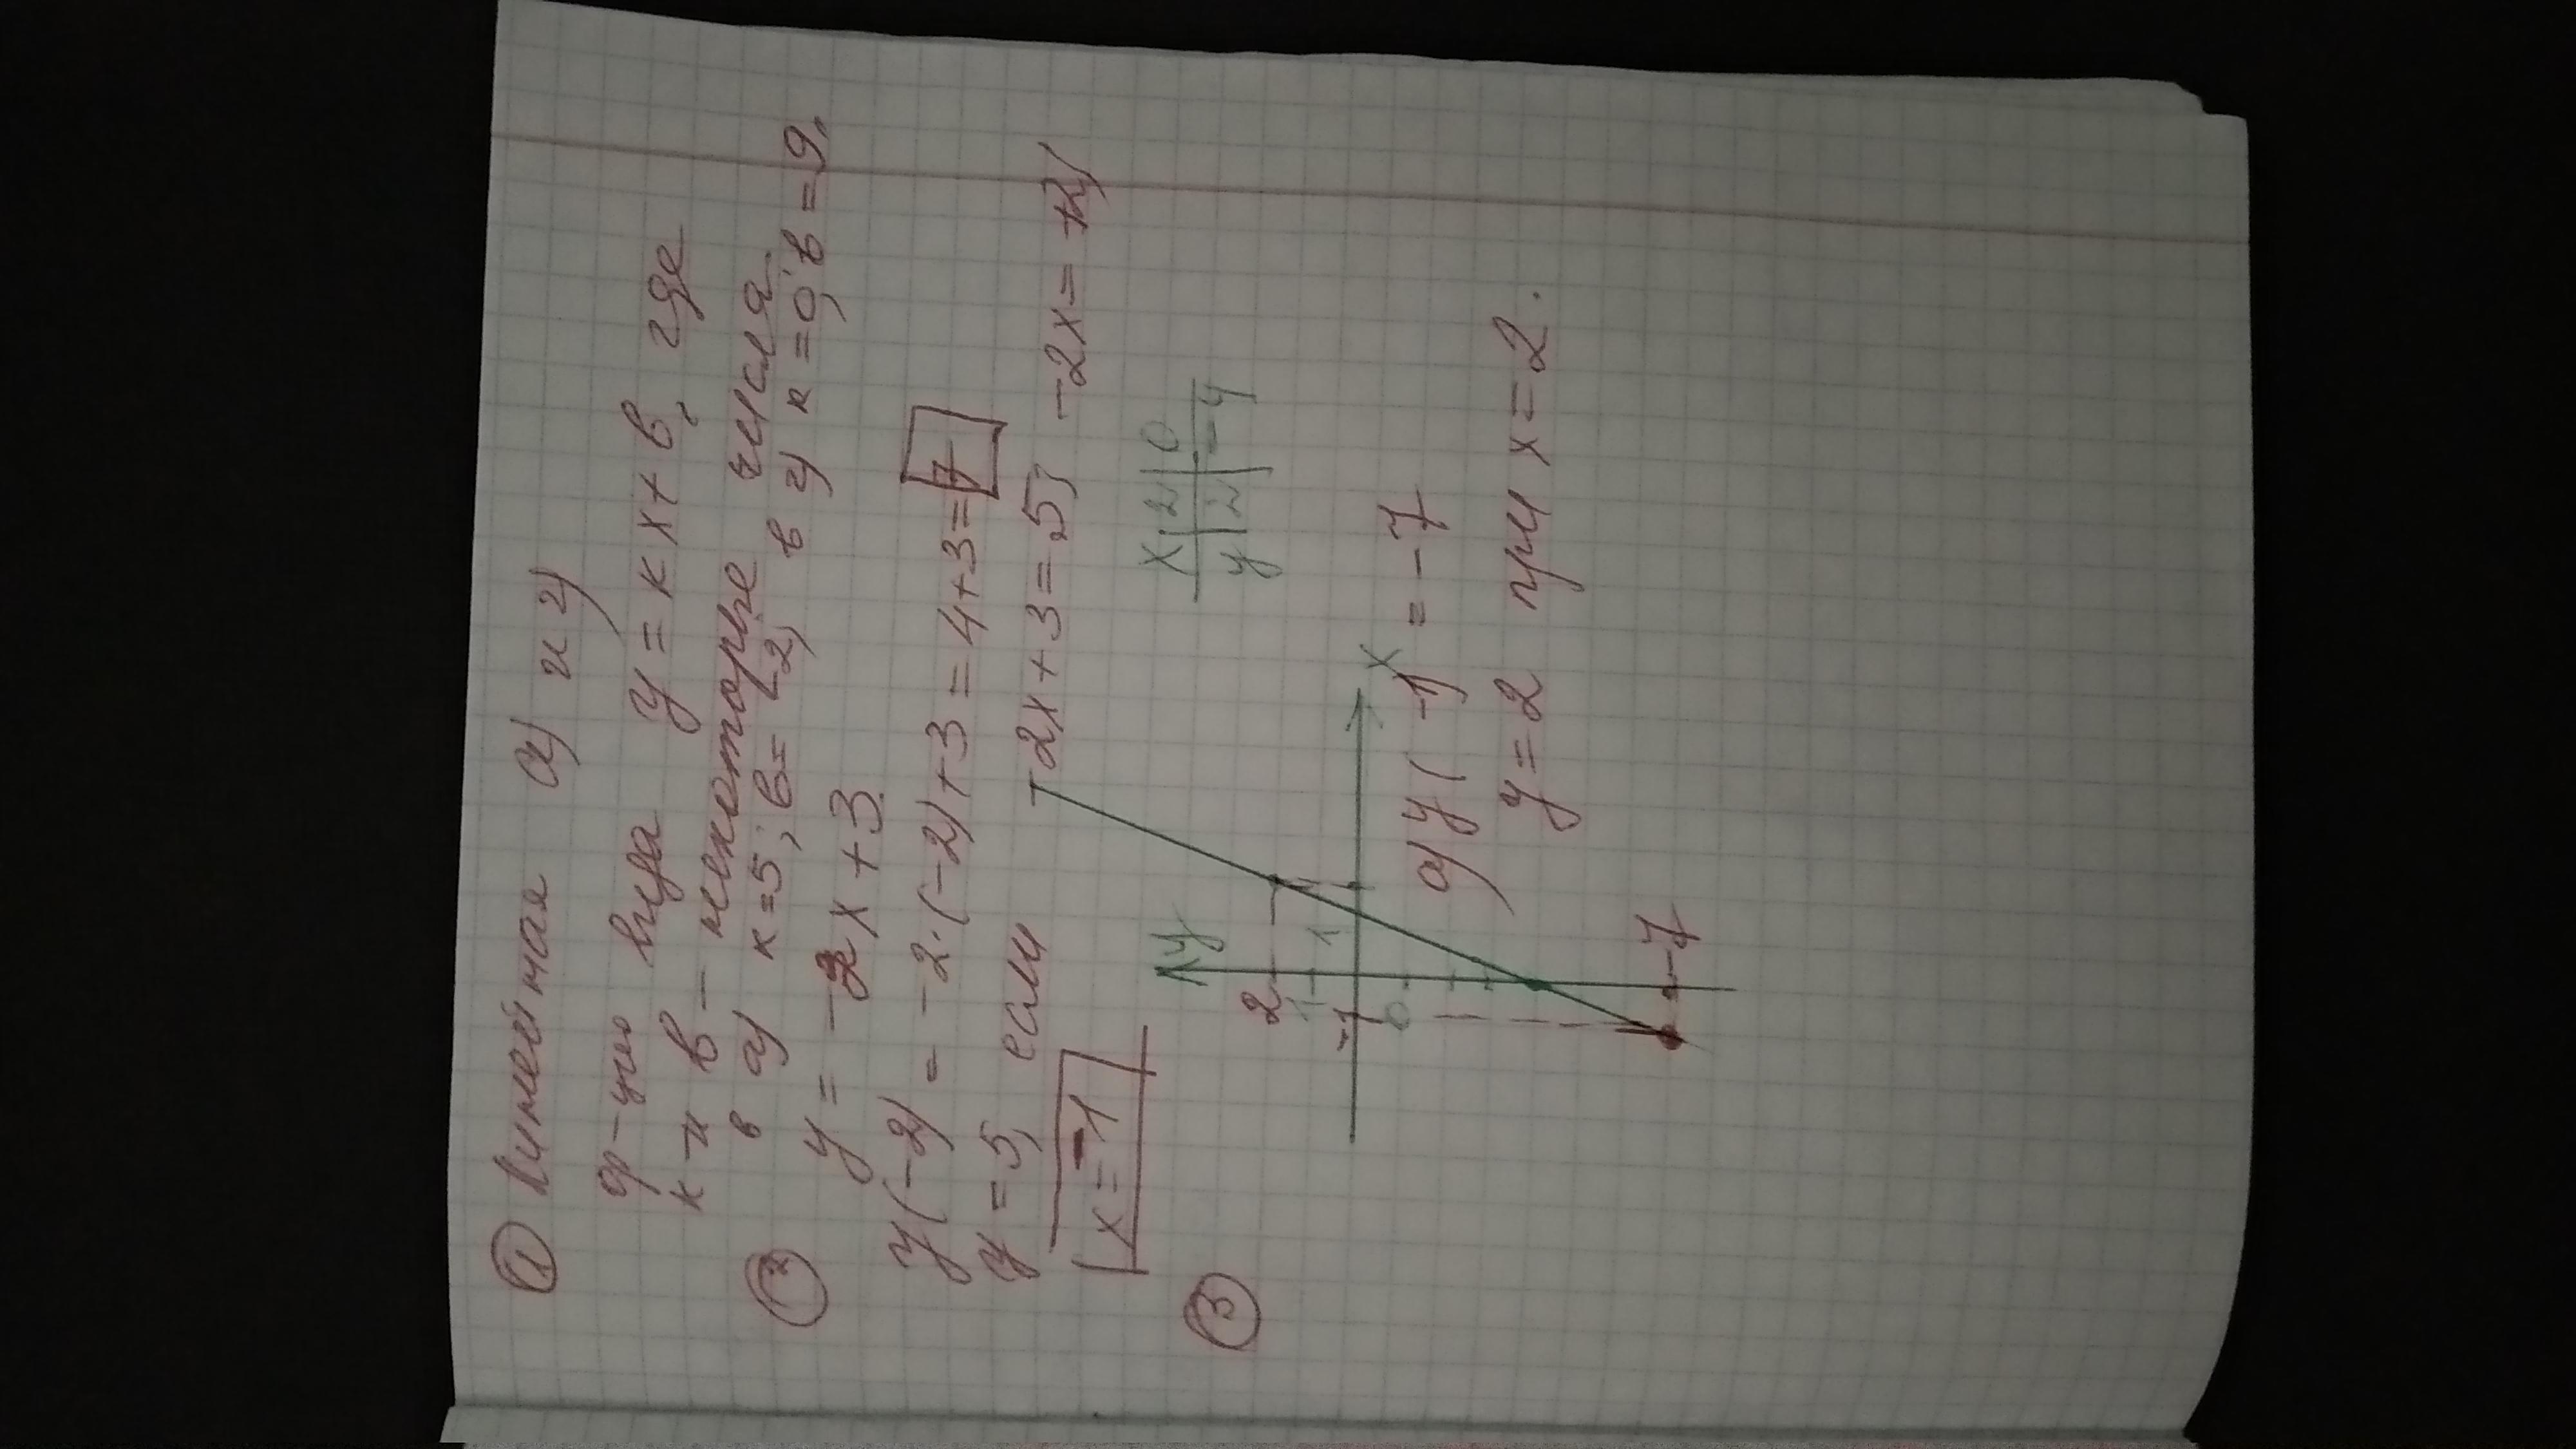 ① Линейная а) и г)
ф-ция вида y = кx + в, где
к и в – некоторые числа.
в а) к = 5; в = -2, в г) к = 0; в = 9.
② y = -2x + 3.
y(-2) = -2·(-2) + 3 = 4 + 3 = 7
y = 5, если -2x + 3 = 5; -2x = +2;
x = -1
③ y x 2 0
y 2 -4
2
1 1
x
-1 0
-7
а) y(-1) = -7
y = 2 при x = 2.